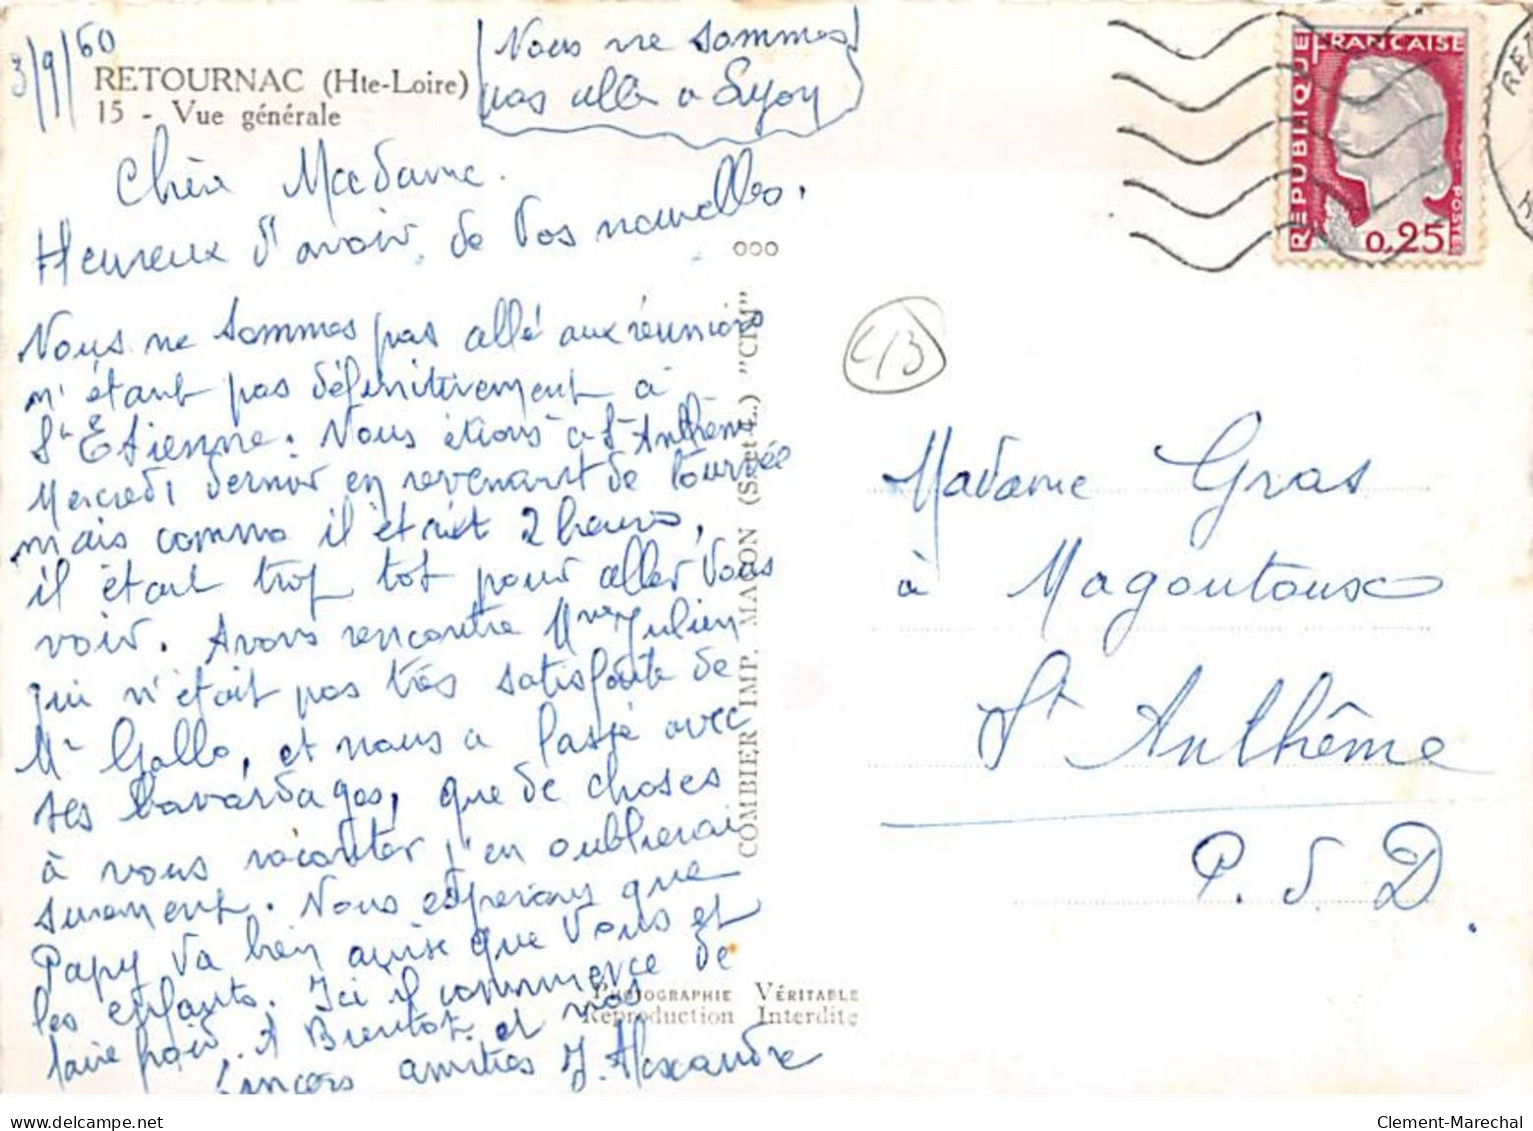 3/9/60
RETOURNAC (Hte-Loire)
15 - Vue générale
Nous ne sommes
pas allé a Lyon
Chère Madame.
Heureux d'avoir de Vos nouvelles.
Nous ne sommes pas allé aux réunions
n'étant pas définitivement à
St Etienne. Nous étions a St Anthème
Mercredi dernier en revenant de tournée
mais comme il était 2 heures,
il était trop tot pour aller Vous
voir. Avons rencontré Mme Julien
qui n'était pas très satisfaite de
Mr Gallo, et nous a lassé avec
ses bavardages, que de choses
à vous raconter j'en oublierai
surement. Nous esperons que
Papy va bien ainsi que Vous et
les enfants. Ici il commence de
faire froid. A Bientot et nos
sincères amitiés J. Alexandre
COMBIER IMP. MACON (S.-et-L.) "CIM"
PHOTOGRAPHIE VÉRITABLE
Reproduction Interdite
RÉPUBLIQUE FRANÇAISE
POSTES
0,25
43
Madame Gras
à Magoutoux
St Anthême
P. S. D.
Clement-Marechal